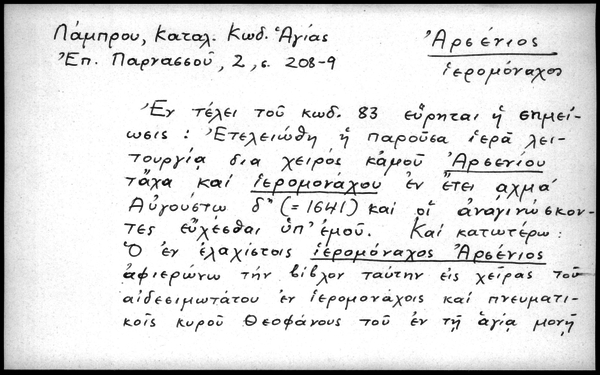 Λάμπρου, Καταλ. Κωδ. Ἁγίας
Ἐπ. Παρνασσοῦ, 2, σ. 208-9
Ἀρσένιος
ἱερομόναχος
Ἐν τέλει τοῦ κωδ. 83 εὕρηται ἡ σημεί-
ωσις : Ἐτελειώθη ἡ παροῦσα ἱερὰ λει-
τουργία δια χειρός κἀμοῦ Ἀρσενίου
τἄχα καί ἱερομονάχου ἐν ἔτει αχμα΄
Αὐγούστῳ δῃ (= 1641) καί οἱ ἀναγινώσκον-
τες εὔχεσθαι ὑπ' ἐμοῦ. Καί κατωτέρω :
Ὁ ἐν ἐλαχίστοις ἱερομόναχος Ἀρσένιος
ἀφιερώνω τήν βίβλον ταύτην εἰς χεῖρας τοῦ
αἰδεσιμωτάτου ἐν ἱερομονάχοις καί πνευματι-
κοῖς κυροῦ Θεοφάνους τοῦ ἐν τῇ ἁγίᾳ μονῇ